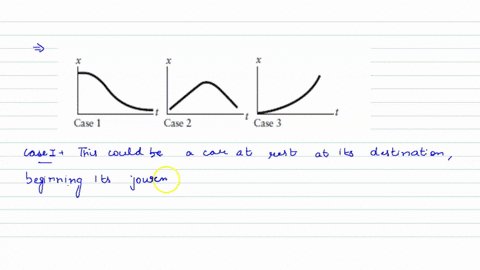 ⇒
x x x
t t t
Case 1 Case 2 Case 3
Case I → This could be a car at rest at its destination,
beginning its journ